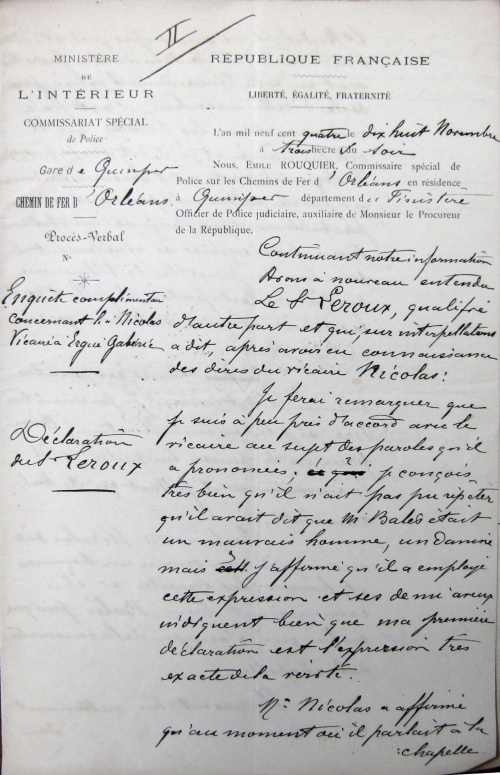 II
MINISTÈRE
DE
L'INTÉRIEUR
COMMISSARIAT SPÉCIAL
de Police
Gare de Quimper
CHEMIN DE FER D'Orléans
Procès-Verbal
N°
Enquête complimentaire
concernant l'a Nicolas
Vicaire à Ergué Gabéric
Déclaration
du S. Leroux
RÉPUBLIQUE FRANÇAISE
LIBERTÉ, ÉGALITÉ, FRATERNITÉ
L'an mil neuf cent quatre le dix huit Novembre
à trois heure du soir
Nous, EMILE ROUQUIER, Commissaire spécial de
Police sur les Chemins de Fer d'Orléans en résidence
à Quimper département du Finistère
Officier de Police judiciaire, auxiliaire de Monsieur le Procureur
de la République.
Continuant notre information
Avons à nouveau entendu
Le S. Leroux, qualifié
d'autre part et qui, sur interpellations
a dit, après avoir eu connaissance
des dires du vicaire Nicolas:
Je ferai remarquer que
je suis à peu près d'accord avec le
vicaire au sujet des paroles qu'il
a prononcées; je conçois
très bien qu'il n'ait pas pu répéter
qu'il avait dit que M. Balès était
un mauvais homme, un damné
mais j'affirme qu'il a employé
cette expression et ses demi aveux
indiquent bien que ma première
déclaration est l'expression très
exacte de la vérité.
M. Nicolas a affirmé
qu'au moment où il parlait à la
chapelle